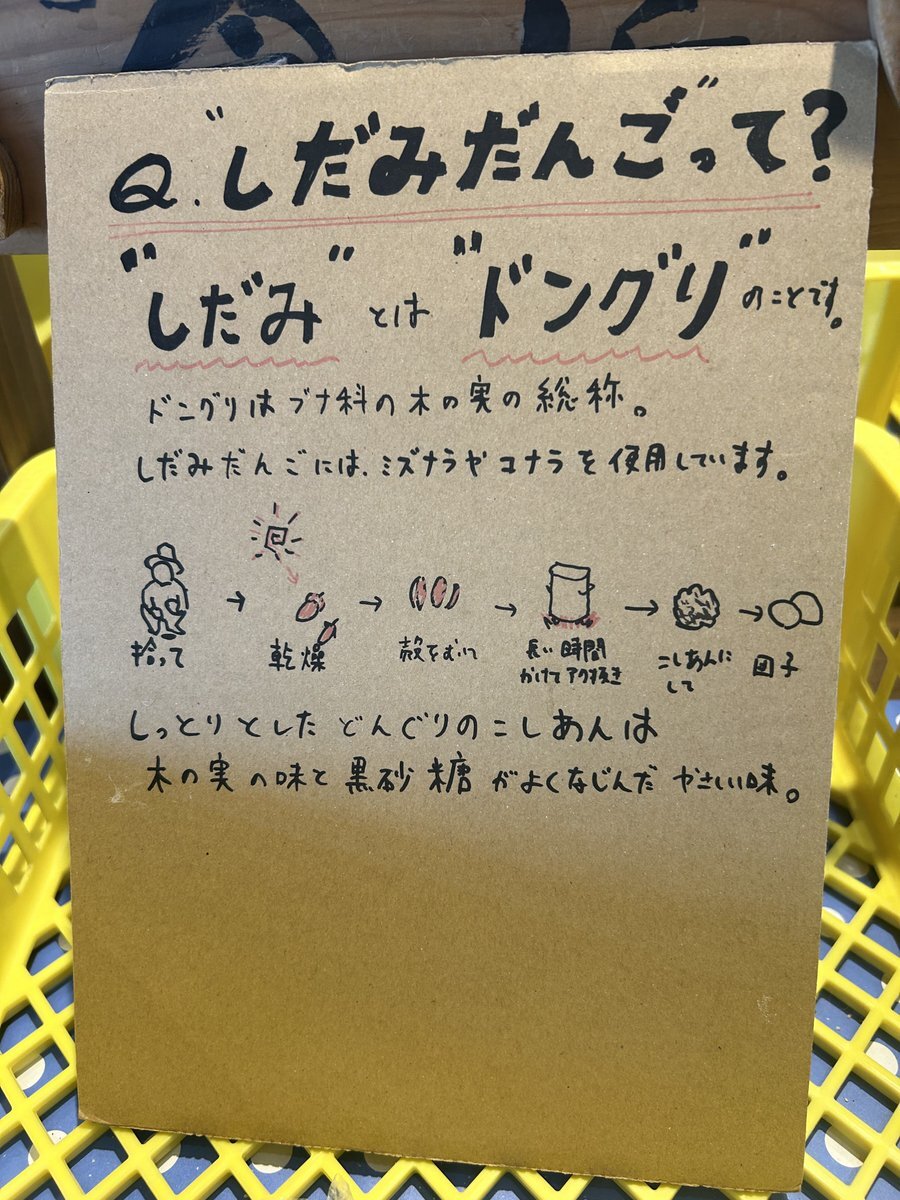 Q. "しだみだんご"って?
"しだみ"とは"ドングリ"のことです。
ドングリはブナ科の木の実の総称。
しだみだんごには、ミズナラやコナラを使用しています。
拾って → 乾燥 → 殻をむいて → 長い時間かけてアク抜き → こしあんにして → 団子
しっとりとしたどんぐりのこしあんは
木の実の味と黒砂糖がよくなじんだやさしい味。